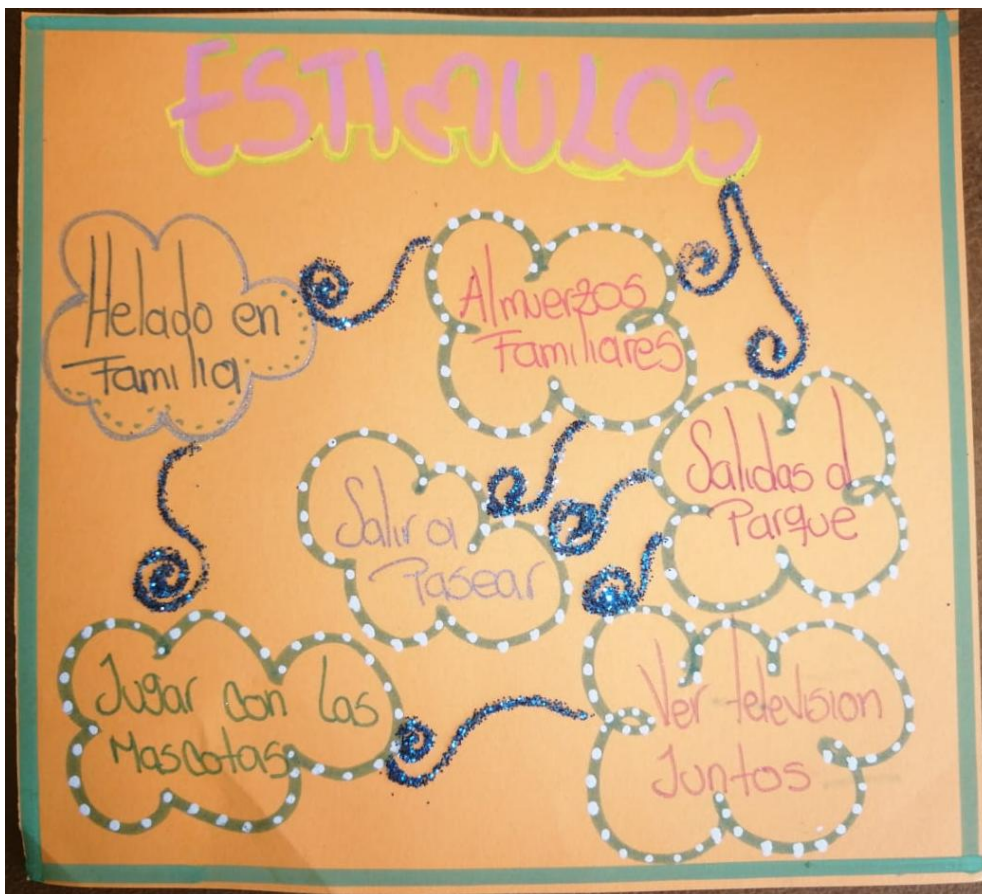 ESTIMULOS
Helado en
Familia
Almuerzos
Familiares
Salidas al
Parque
Salir a
Pasear
Jugar con las
Mascotas
Ver television
Juntos